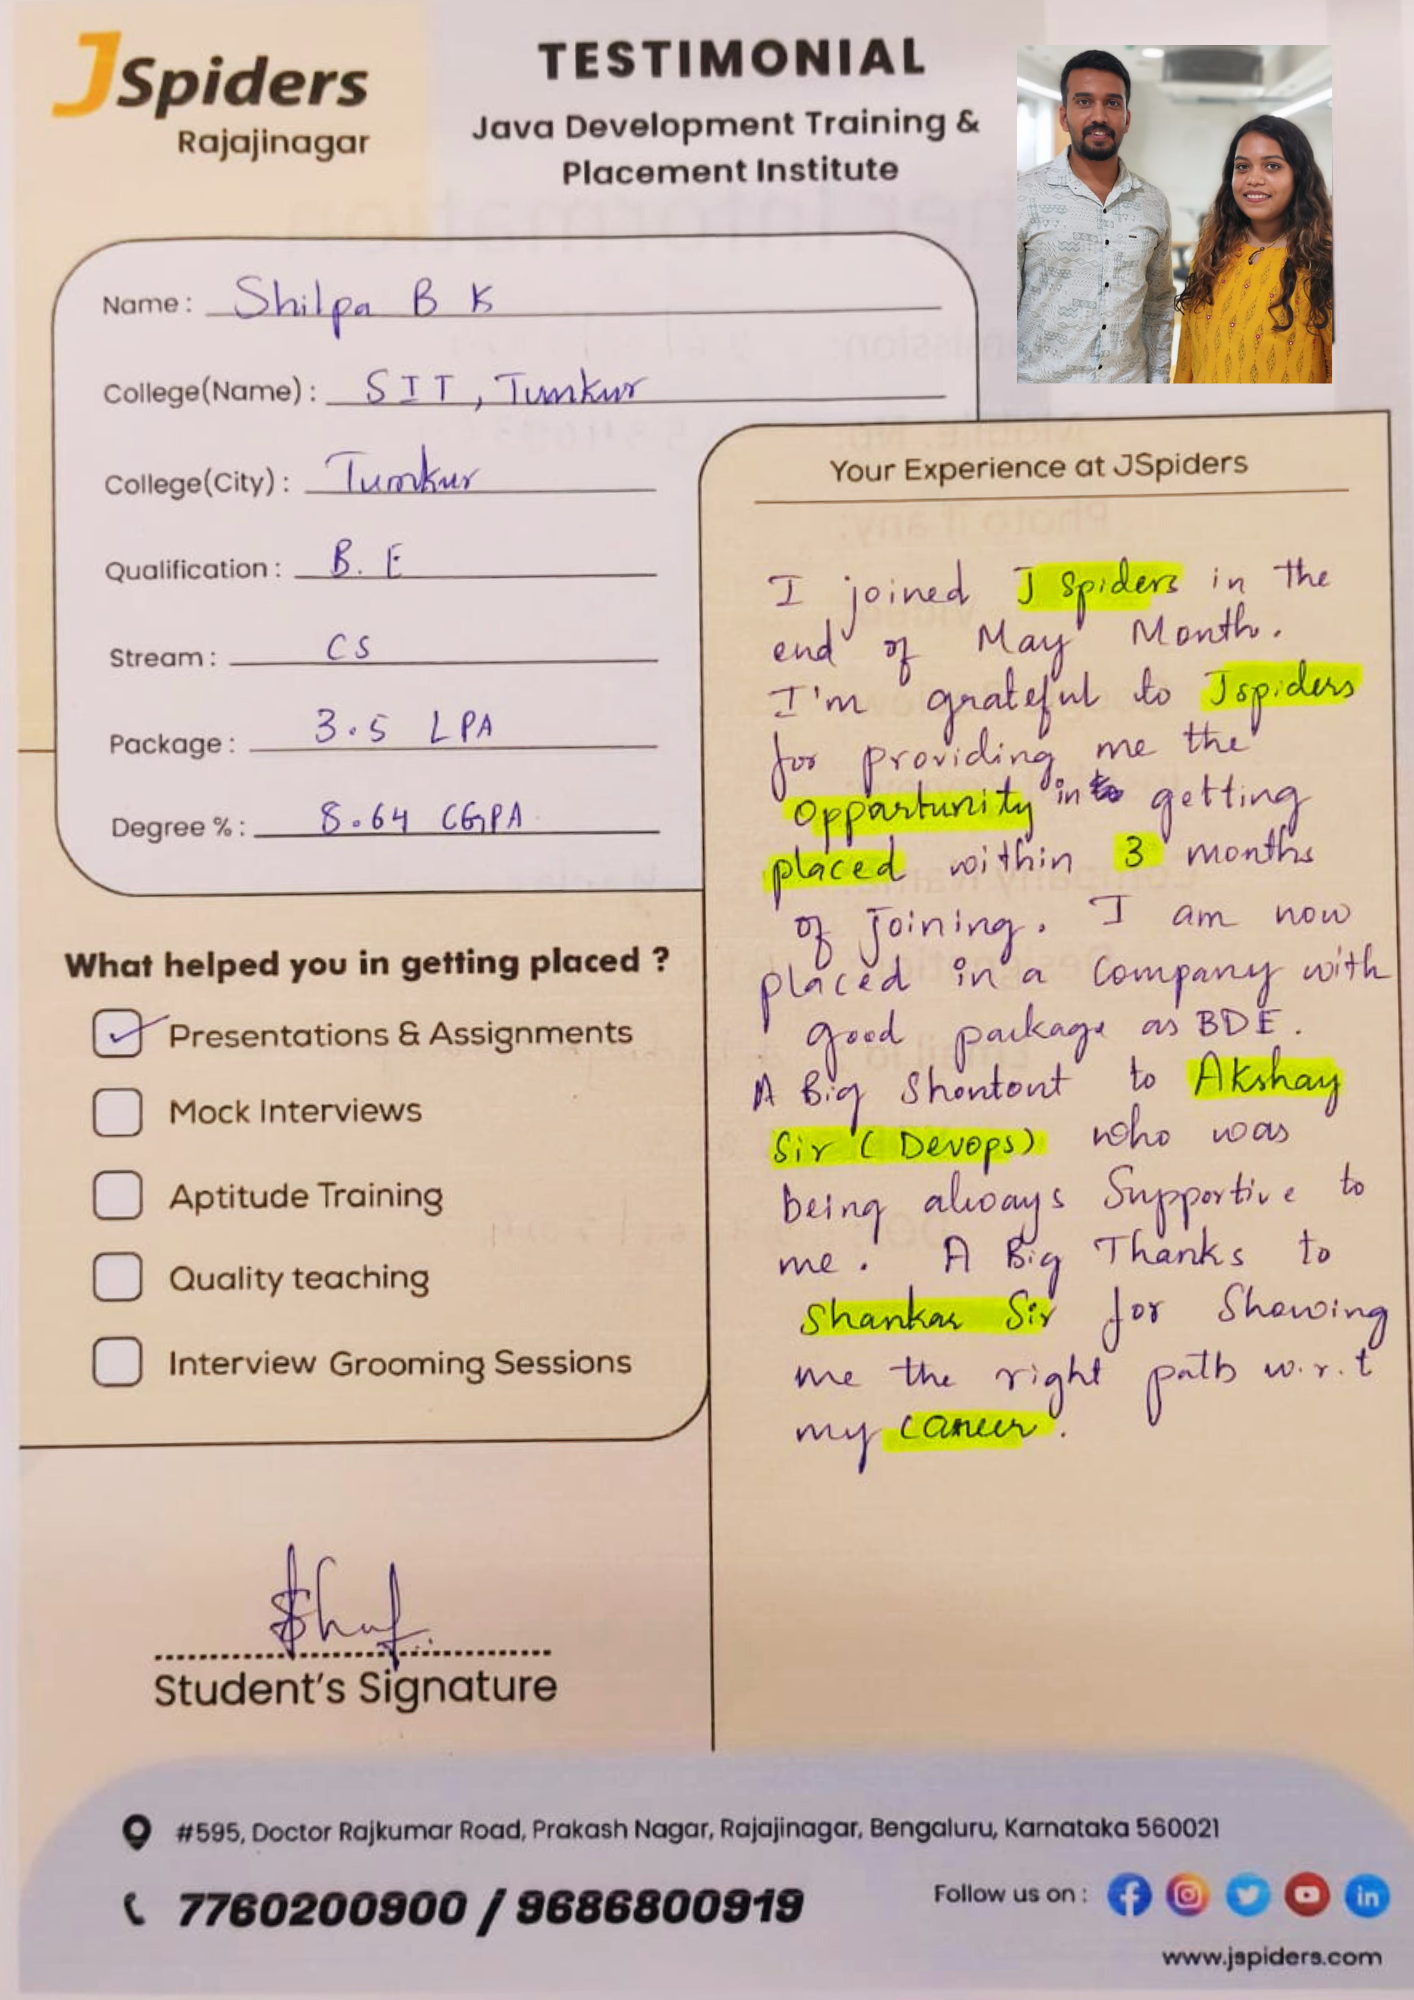 JSpiders
Rajajinagar
TESTIMONIAL
Java Development Training &
Placement Institute
Name : Shilpa B K
College(Name) : SIT, Tumkur
College(City) : Tumkur
Qualification : B.E
Stream : CS
Package : 3.5 LPA
Degree % : 8.64 CGPA
What helped you in getting placed ?
Presentations & Assignments
Mock Interviews
Aptitude Training
Quality teaching
Interview Grooming Sessions
Student's Signature
Your Experience at JSpiders
I joined J Spiders in the
end of May Month.
I'm grateful to Jspiders
for providing me the
opportunity in getting
placed within 3 months
of joining. I am now
placed in a company with
good package as BDE.
A Big Shoutout to Akshay
Sir (Devops) who was
being always Supportive to
me. A Big Thanks to
Shankar Sir for Showing
me the right path w.r.t
my career.
#595, Doctor Rajkumar Road, Prakash Nagar, Rajajinagar, Bengaluru, Karnataka 560021
7760200900 / 9686800919
Follow us on :
www.jspiders.com